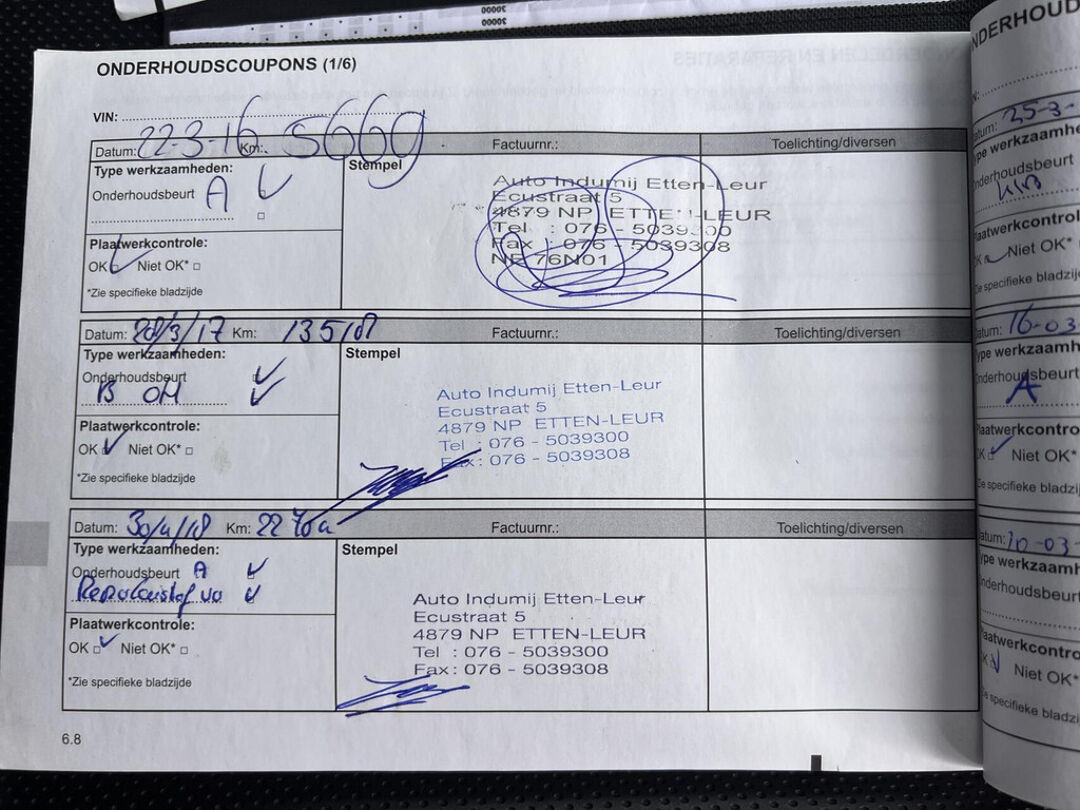 ONDERHOUDSCOUPONS (1/6)
VIN:
Datum: 22-3-16 Km: 5669 Factuurnr.: Toelichting/diversen
Type werkzaamheden: Stempel
Onderhoudsbeurt A
Auto Indumij Etten-Leur
Ecustraat 5
4879 NP ETTEN-LEUR
Tel : 076 - 5039300
Fax : 076 - 5039308
NE 76N01
Plaatwerkcontrole:
OK Niet OK* □
*Zie specifieke bladzijde
Datum: 28/3/17 Km: Factuurnr.: Toelichting/diversen
Type werkzaamheden: Stempel
Onderhoudsbeurt
B OH
Auto Indumij Etten-Leur
Ecustraat 5
4879 NP ETTEN-LEUR
Tel : 076 - 5039300
Fax : 076 - 5039308
Plaatwerkcontrole:
OK Niet OK* □
*Zie specifieke bladzijde
Datum: 30/4/18 Km: Factuurnr.: Toelichting/diversen
Type werkzaamheden: Stempel
Onderhoudsbeurt A
Auto Indumij Etten-Leur
Ecustraat 5
4879 NP ETTEN-LEUR
Tel : 076 - 5039300
Fax : 076 - 5039308
Plaatwerkcontrole:
OK □ Niet OK* □
*Zie specifieke bladzijde
6.8
NDERHOUD
atum: 25-3-
ype werkzaamhe
nderhoudsbeurt
laatwerkcontrol
Niet OK*
ie specifieke bladzij
atum: 16-03
ype werkzaamh
nderhoudsbeurt
A
laatwerkcontro
Niet OK*
ie specifieke bladzi
atum: 10-03-
ype werkzaamh
nderhoudsbeurt
laatwerkcontro
Niet OK*
e specifieke bladzi